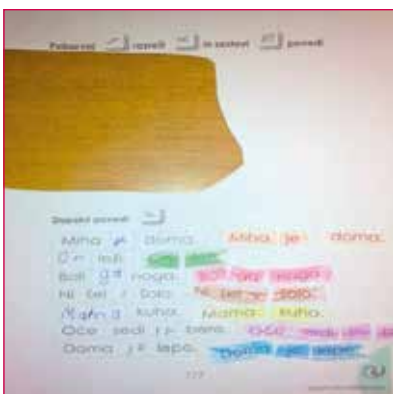 Pobarvaj razreži in sestavi povedi
Dopolni povedi
Miha je doma. Miha je doma.
On leži.
Boli ga noga. Boli ga noga.
Ni šel v šolo. Ni šel v šolo.
Mama kuha. Mama kuha.
Oče sedi in bere. Oče sedi in
Doma je lepo. Doma je lepo.